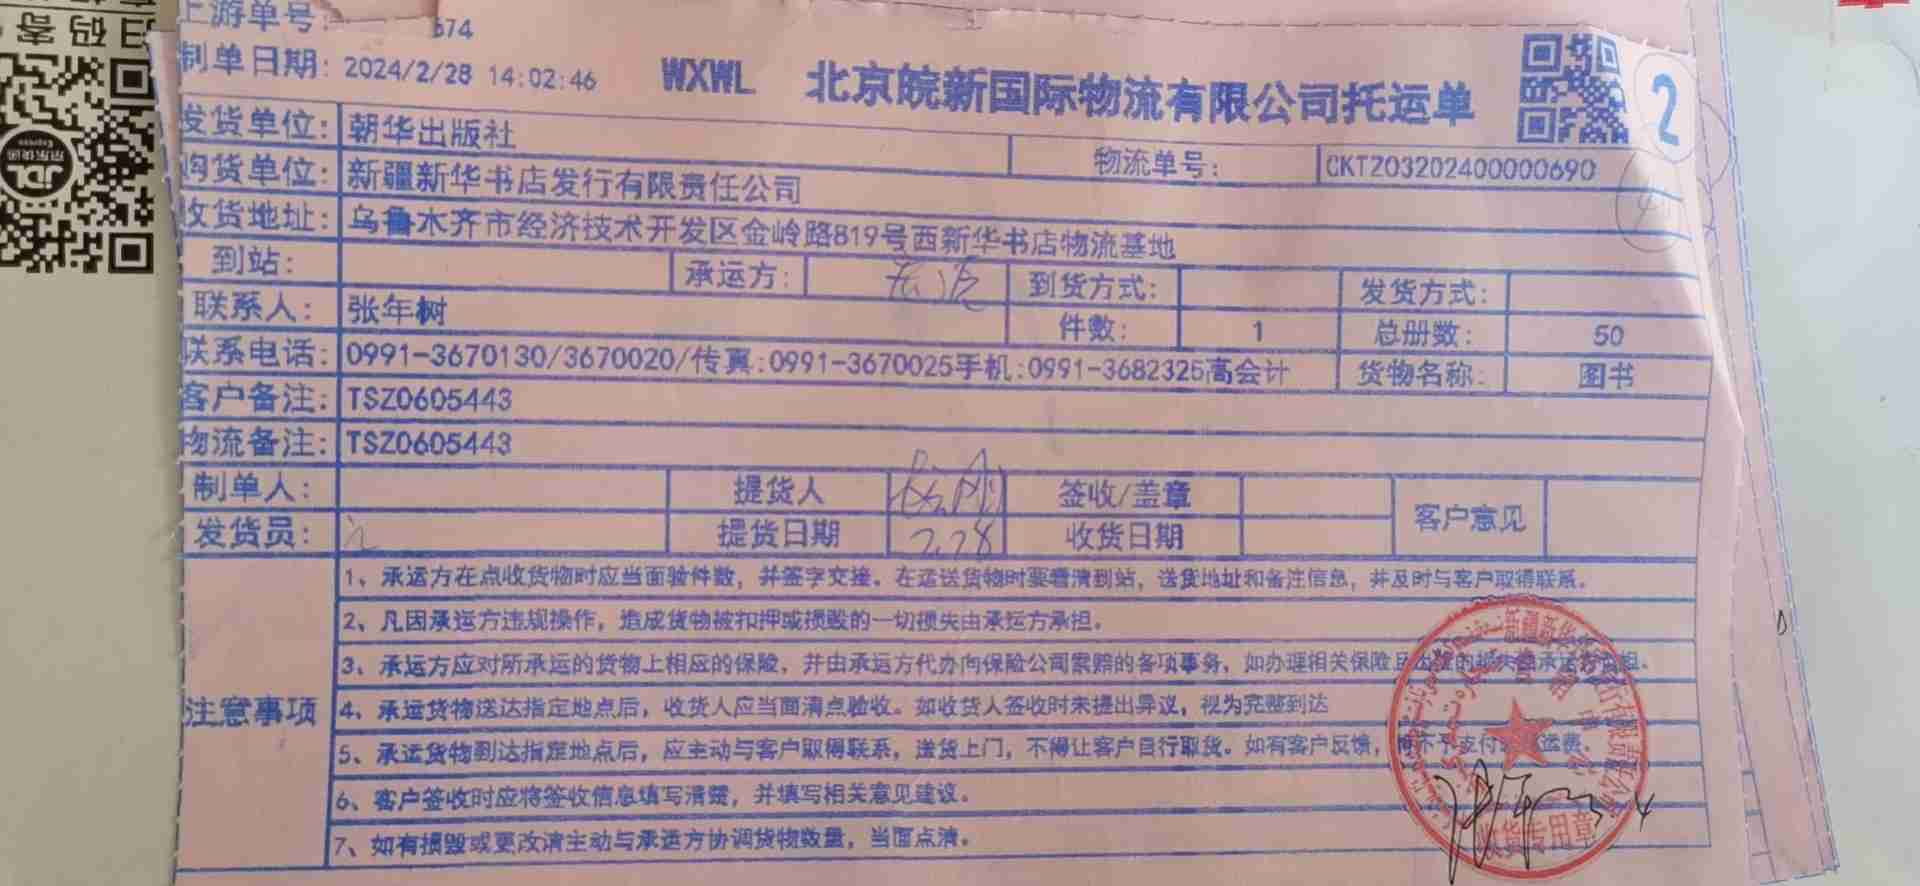 上游单号: 674
制单日期: 2024/2/28 14:02:46 WXWL 北京皖新国际物流有限公司托运单 2
发货单位: 朝华出版社 物流单号: CKTZ03202400000690
购货单位: 新疆新华书店发行有限责任公司
收货地址: 乌鲁木齐市经济技术开发区金岭路819号西新华书店物流基地
到站: 承运方: 到货方式: 发货方式:
联系人: 张年树 件数: 1 总册数: 50
联系电话: 0991-3670130/3670020/传真:0991-3670025手机:0991-3682325高会计 货物名称: 图书
客户备注: TSZ0605443
物流备注: TSZ0605443
制单人: 提货人 签收/盖章 客户意见
发货员: 提货日期 2.28 收货日期
注意事项
1、承运方在点收货物时应当面验件数，并签字交接。在运送货物时要看清到站，送货地址和备注信息，并及时与客户取得联系。
2、凡因承运方违规操作，造成货物被扣押或损毁的一切损失由承运方承担。
3、承运方应对所承运的货物上相应的保险，并由承运方代办向保险公司索赔的各项事务，如办理相关保险且出现的损失由承运方承担。
4、承运货物送达指定地点后，收货人应当面清点验收。如收货人签收时未提出异议，视为完整到达
5、承运货物到达指定地点后，应主动与客户取得联系，送货上门，不得让客户自行取货。如有客户反馈，
6、客户签收时应将签收信息填写清楚，并填写相关意见建议。
7、如有损毁或更改请主动与承运方协调货物数量，当面点清。
新疆新华书店发行有限责任公司
收货专用章
扫码寄
京东快递
Express
JDL